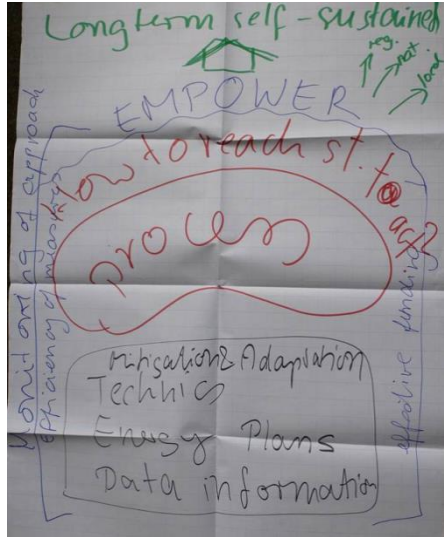 Longterm self-sustained
reg.
nat.
EMPOWER
How to reach st. to act?
process
Monitoring of approach
efficiency of measures
effective funding
Mitigation & Adaptation
Technics
Energy Plans
Data information